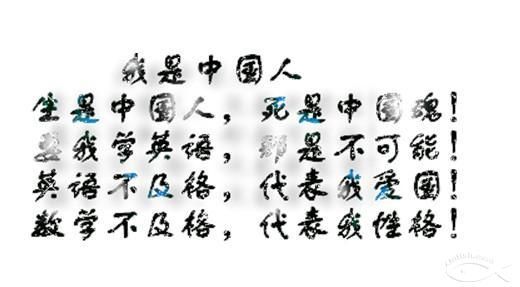 我是中国人
生是中国人，死是中国魂！
要我学英语，那是不可能！
英语不及格，代表我爱国！
数学不及格，代表我性格！